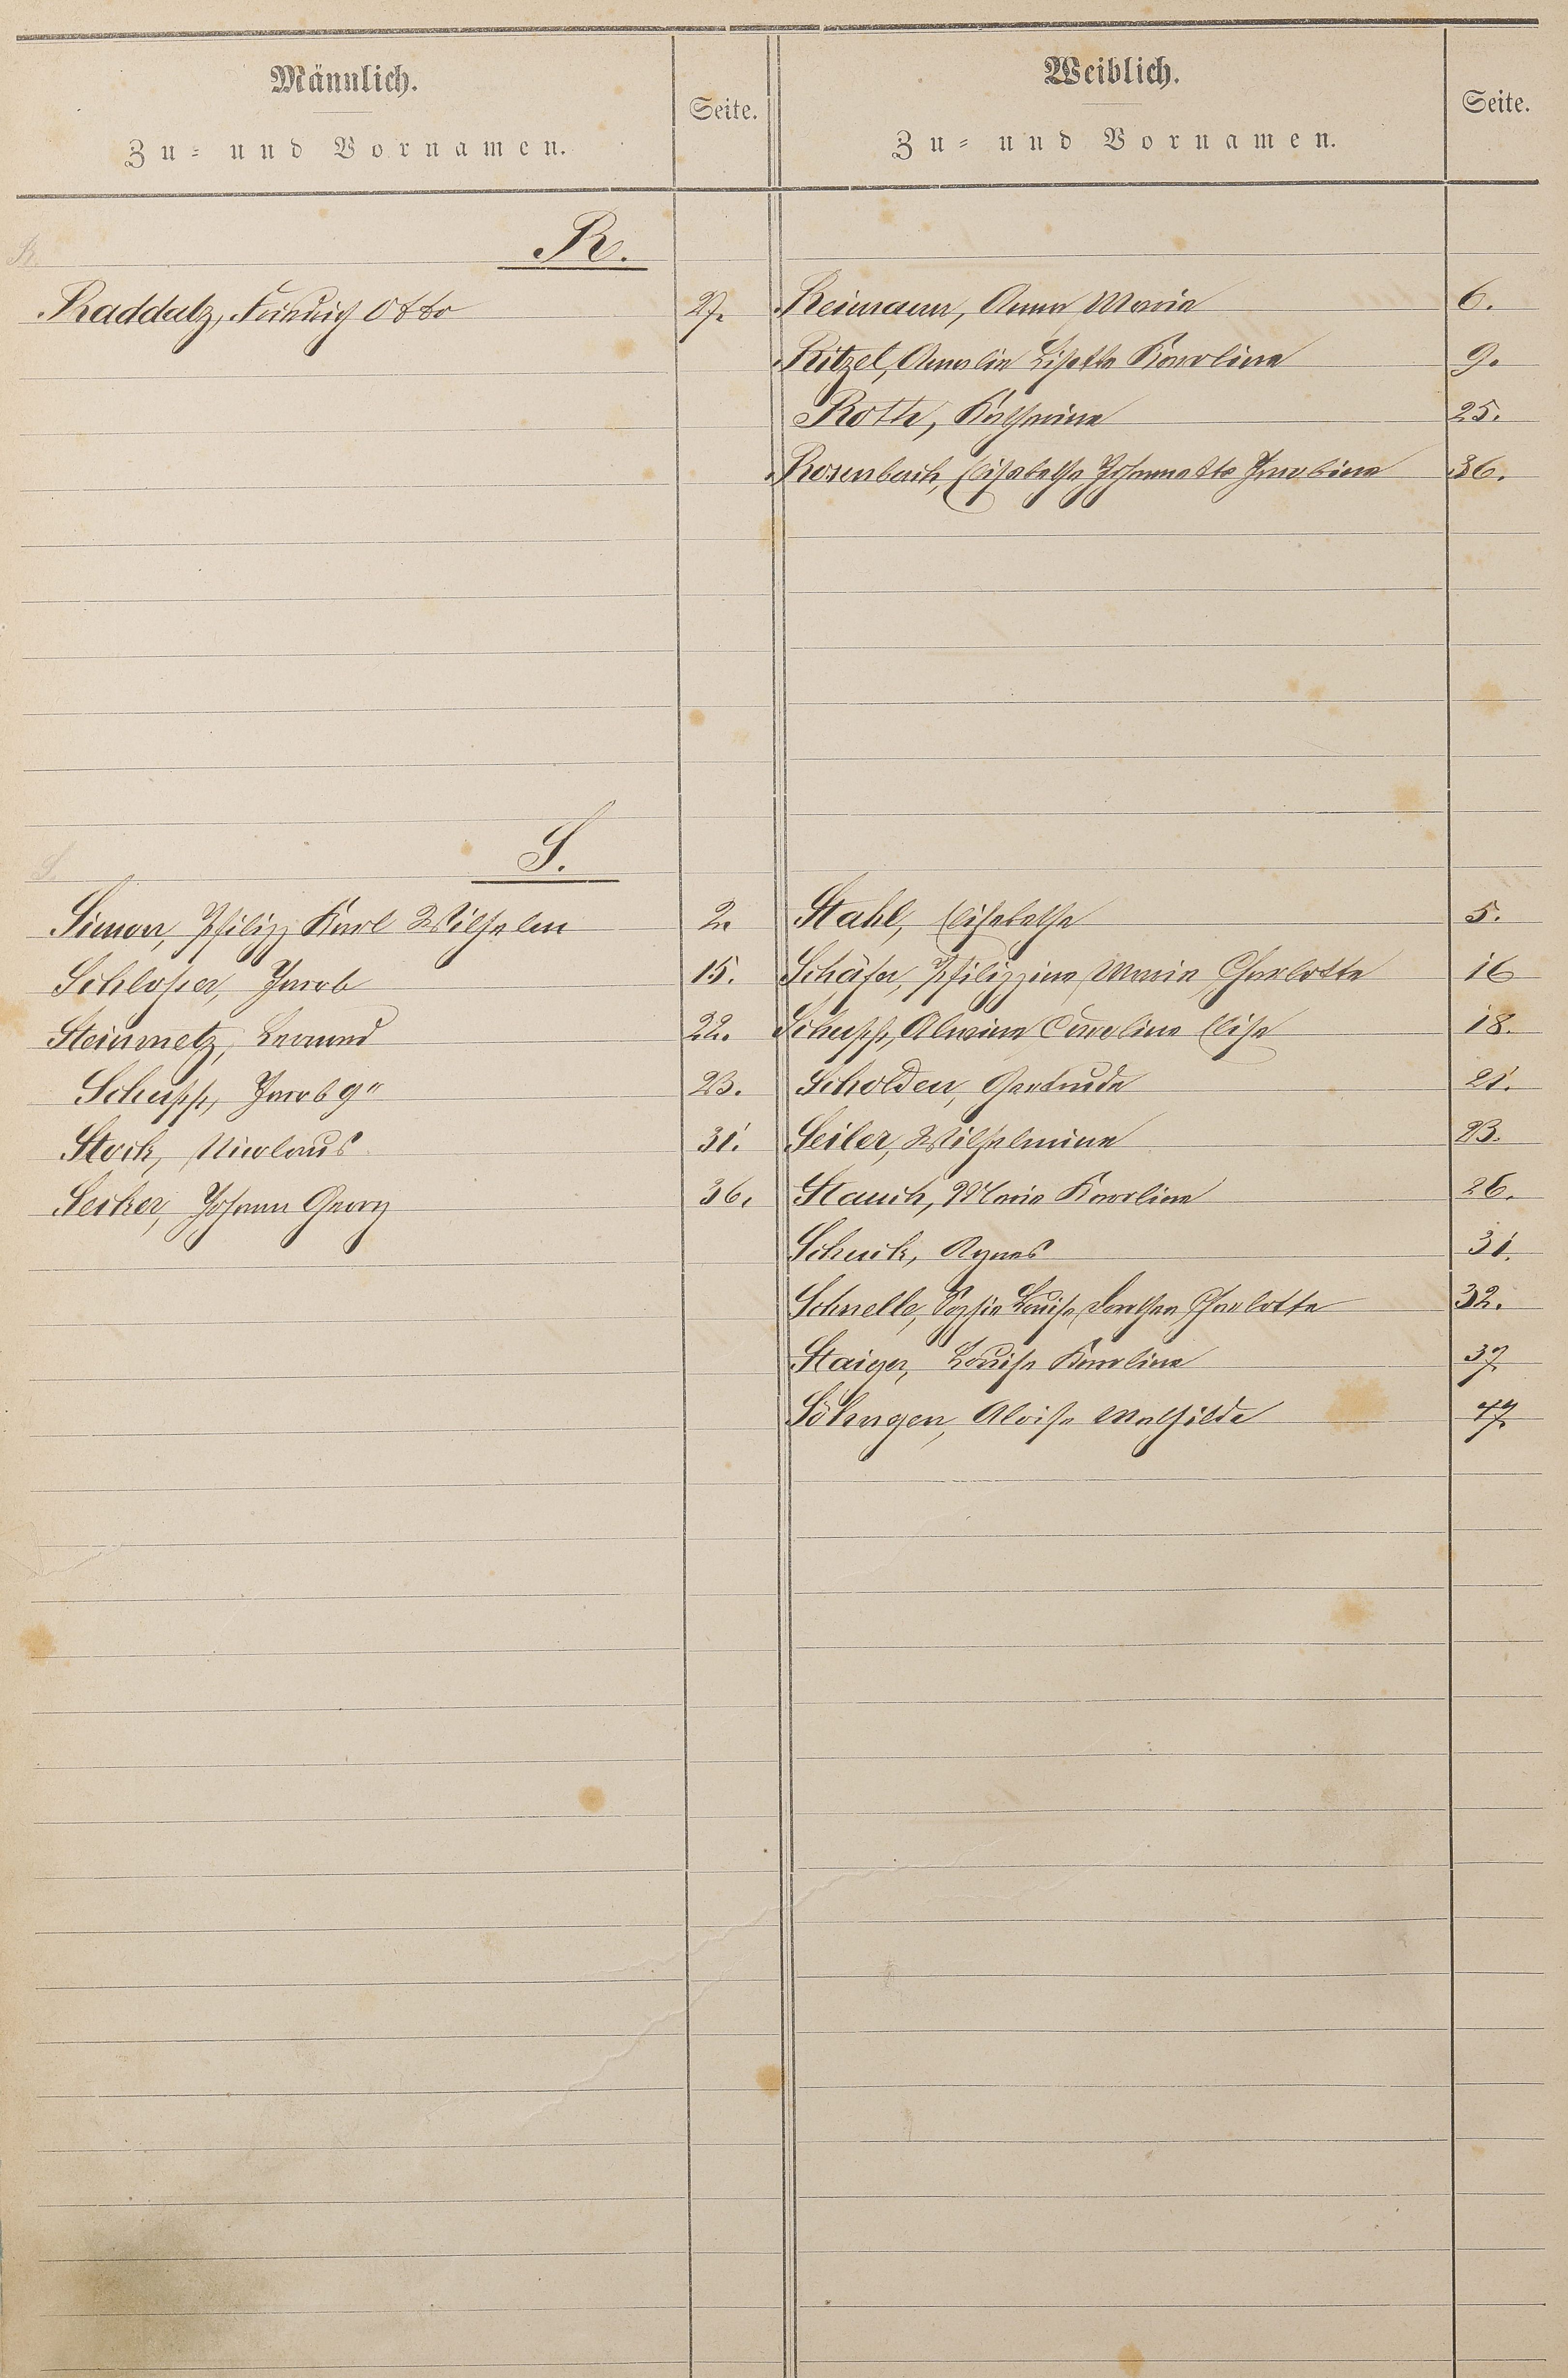 Männlich.
Zu- und Vornamen.
Seite.
Weiblich.
Zu- und Vornamen.
Seite.
R.
Raddatz, Friedrich Otto 27.
Reimann, Anna Maria 6.
Ritzel, Amalie Lisette Karoline 9.
Roth, Katharina 25.
Rosenbach, Elisabetha Johannette Jacobine 36.
S.
Simon, Philipp Karl Wilhelm 2.
Schlosser, Jacob 15.
Steinmetz, 22.
Schupp, Jacob 9" 23.
Stock, Nicolaus 31.
Johann Georg 36.
Stahl, Elisabetha 5.
Schäfer, Philippine Maria Charlotte 16
Schupp, Alwine Caroline Elise 18.
Scholden, Gertrude 21.
Seiler, Wilhelmine 23.
Stauch, Maria Karoline 26.
Schuck, Agnes 31.
Schnelle, Sophie Louise Dorothea Charlotte 32.
Staiger, Louise Karoline 37.
Söhngen, Aloise Mathilde 47.